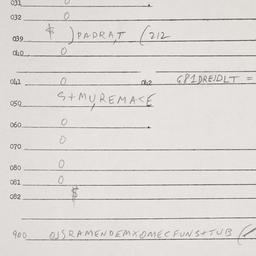 031 0
032 0
039 $ ) PADRA,T ( 212
040 0
041 0 042 GP1DREIDLT =
050 S+MUREMASE
060 0
070 0
080 0
081 0
082 $
900 OJSRAMENDEMXOMECFUNS+TUB (